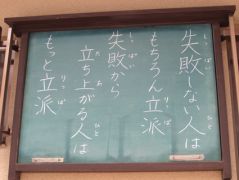 失敗しない人は
もちろん立派
失敗から
立ち上がる人は
もっと立派